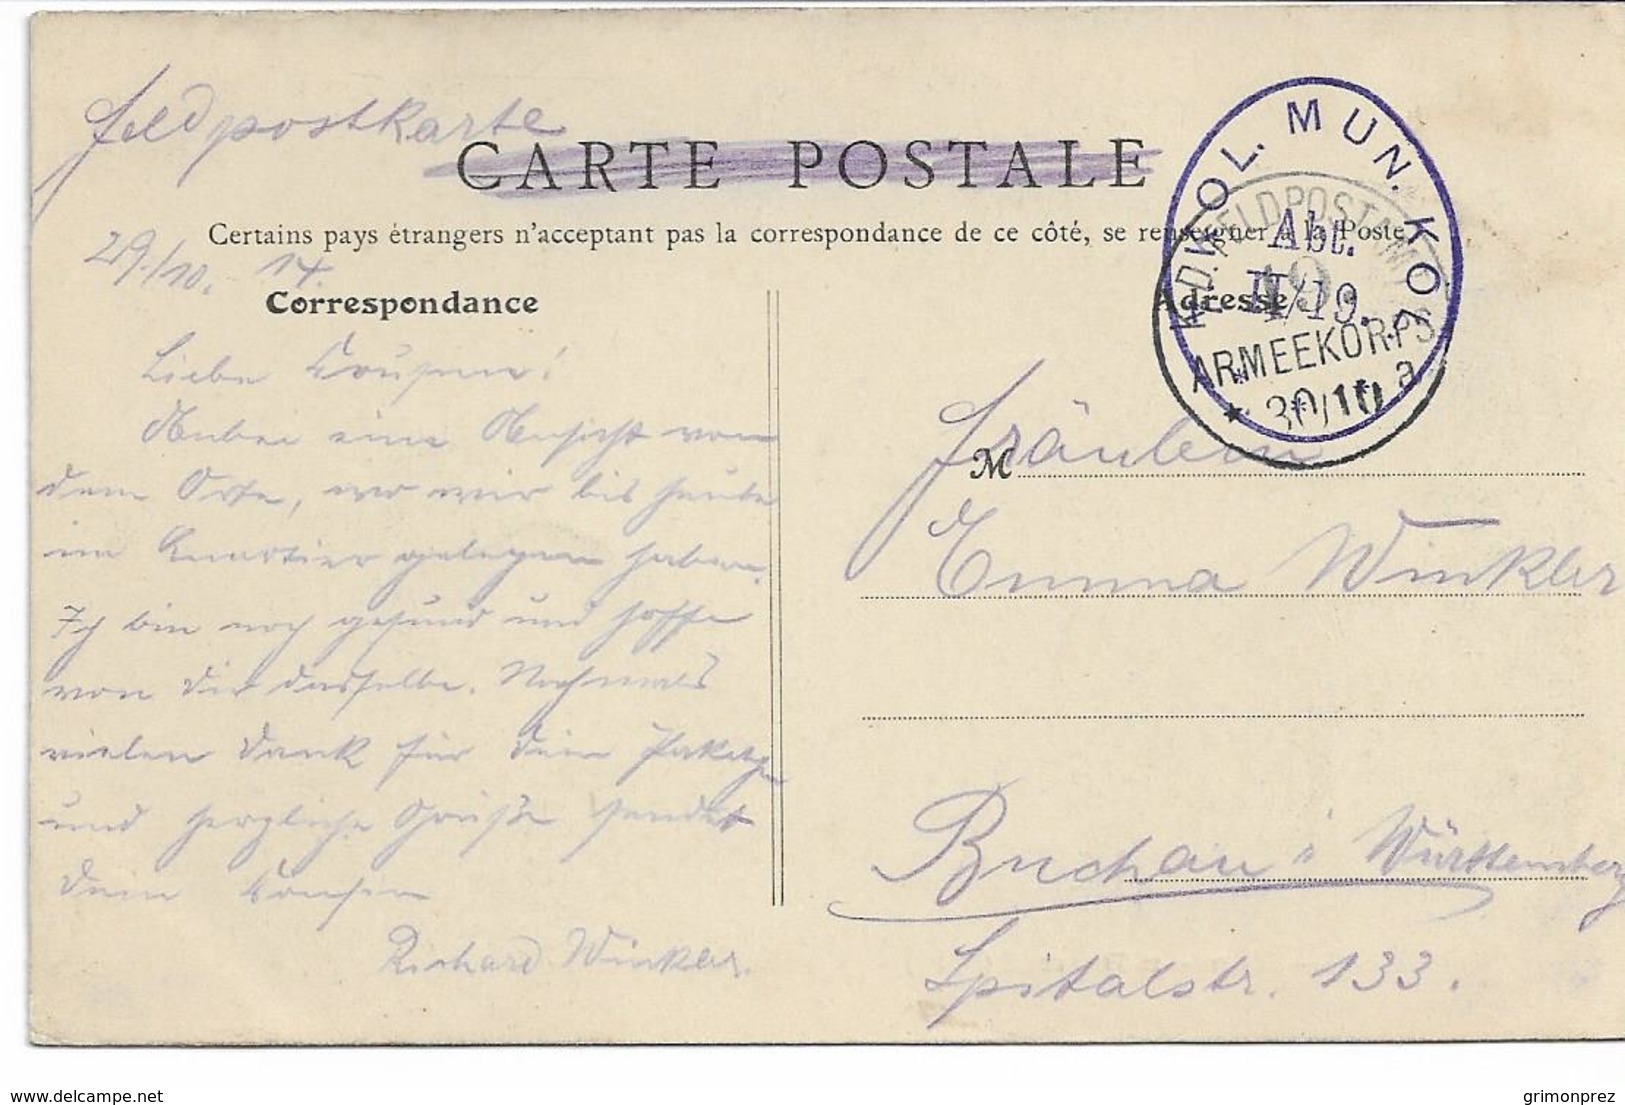 Feldpostkarte
CARTE POSTALE
Certains pays étrangers n'acceptent pas la correspondance de ce côté, se renseigner à la Poste
29./10. 14.
Correspondance
Adresse
Liebe Cousine!
Anbei eine Ansicht von
dem Orte, wo wir bis heute
im Quartier gelegen haben.
Ich bin noch gesund und hoffe
von Dir dasselbe. Nochmals
vielen Dank für Dein Paketche
und herzliche Grüße sendet
Dein Cousin
Richard Winkler.
KOL. MUN. KOL
Abt.
II/19.
FELDPOSTAMT
19.
ARMEEKORPS
* 30/10 a
M
Fräulein
Emma Winkler
Buchau i Württemberg
Spitalstr. 133.
delcampe.net
grimonprez